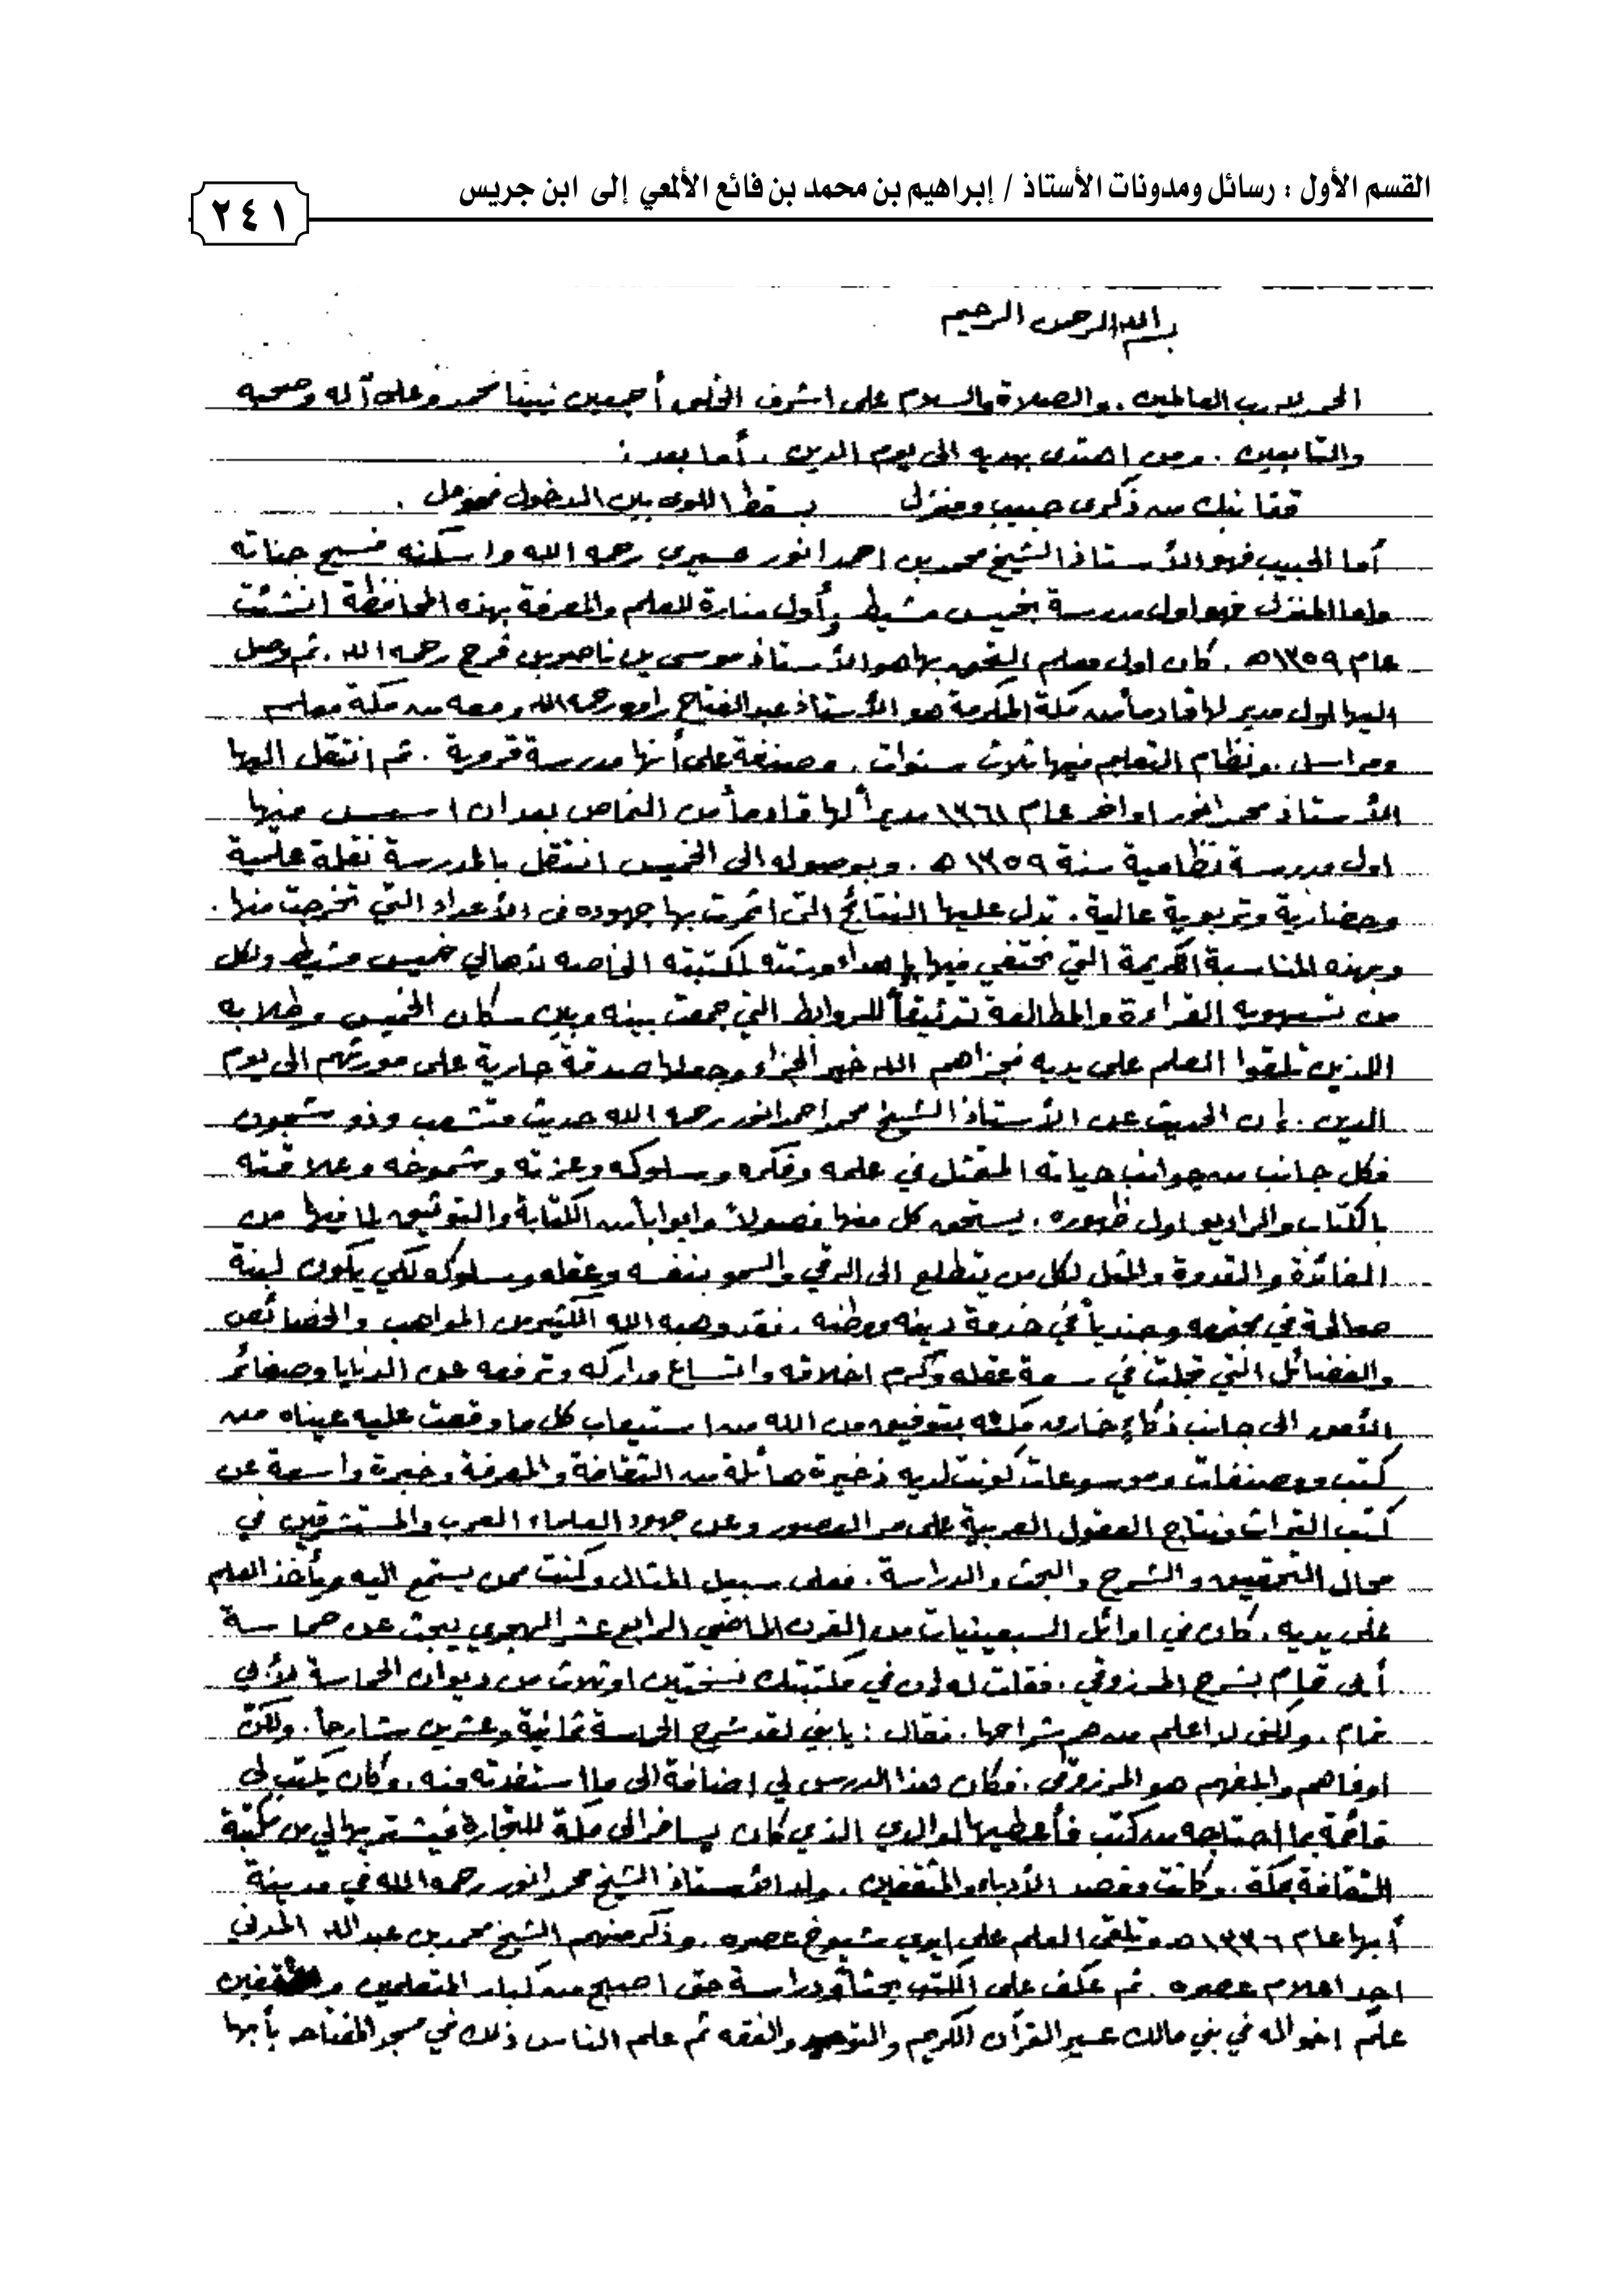 القسم الأول : رسائل ومدونات الأستاذ / إبراهيم بن محمد بن فائع الألمعي إلى ابن جريس
٢٤١
بسم الله الرحمن الرحيم
الحمد لله رب العالمين . والصلاة والسلام على اشرف الخلق أجمعين نبينا محمد وعلى آله وصحبه
والتابعين . ومن اهتدى بهديه الى يوم الدين . أما بعد :
قفا نبك من ذكرى حبيب ومنزل بسقط اللوى بين الدخول فحومل .
أما الحبيب فهو الأستاذ الشيخ محمد بن احمد انور عسيري رحمه الله واسكنه فسيح جناته
واما المنزل فهو اول مدرسة بخميس مشيط وأول منارة للعلم والمعرفة بهذه المحافظة انشئت
عام ١٣٥٩هـ . كان اول معلم التحق بها هو الأستاذ موسى بن ناصر بن فرج رحمه الله . ثم وصل
اليها اول مدير لها قادماً من مكة المكرمة هو الأستاذ عبد الفتاح راوه رحمه الله ومعه من مكة معلم
ومراسل . ونظام التعليم فيها ثلاث سنوات . ومصنفة على أنها مدرسة قروية . ثم انتقل اليها
الأستاذ محمد انور اواخر عام ١٣٦١ مديراً لها قادماً من النماص بعد ان اسس فيها
اول مدرسة نظامية سنة ١٣٥٩هـ . وبوصوله الى الخميس انتقل بالمدرسة نقلة علمية
وحضارية وتربوية عالية . تدل عليها النتائج التي اثمرت بها جهوده في الأعداد التي تخرجت منها .
وبهذه المناسبة الكريمة التي نحتفي فيها بإهداء ورثته لمكتبته الخاصه لأهالي خميس مشيط ولكل
من تستهويه القراءة والمطالعة توثيقاً للروابط التي جمعت بينه وبين سكان الخميس وطلابه
اللذين تلقوا العلم على يديه فجزاهم الله خير الجزاء وجعلها صدقة جارية على مورثهم الى يوم
الدين . إن الحديث عن الأستاذ الشيخ محمد احمد انور رحمه الله حديث متشعب وذو شجون
فكل جانب من جوانب حياته المتمثل في علمه وفكره وسلوكه وعزته وشموخه وعلاقته
بالكتاب والراديو اول ظهوره . يستحق كل منها فصولاً وابواباً من الكتابة والتوثيق لما فيها من
الفائدة والقدوة والمثل لكل من يتطلع الى الرقي والسمو بنفسه وعقله وسلوكه لكي يكون لبنة
صالحة في مجتمعه وجندياً في خدمة دينه ووطنه . فقد وهبه الله الكثير من المواهب والخصائص
والفضائل التي تجلت في سعة عقله وكرم اخلاقه واتساع مداركه وترفعه عن الدنايا وصغائر
الأمور الى جانب ذكاءٍ خارق مكنه بتوفيق من الله من استيعاب كل ما وقعت عليه عيناه من
كتب ومصنفات وموسوعات كونت لديه ذخيرة هائلة من الثقافة والمعرفة وخبرة واسعة عن
كتب التراث ونتاج العقول العربية على مر العصور وعن جهود العلماء العرب والمستشرقين في
مجال التحقيق والشرح والبحث والدراسة . فعلى سبيل المثال وكنت ممن يستمع اليه ويأخذ العلم
على يديه . كان في اوائل السبعينيات من القرن الماضي الرابع عشر الهجري يبحث عن حماسة
أبي تمام بشرح المرزوقي . فقلت له إن في مكتبتك نسختين او ثلاث من ديوان الحماسة لأبي
تمام . ولكني لا اعلم من هم شراحها . فقال : يا بني لقد شرح الحماسة ثمانية وعشرين شارحاً . ولكنّ
اوفاهم وابلغهم هو المرزوقي . فكان هذا الدرس لي إضافة الى ما استفدته منه . وكان يكتب لي
قائمة بما احتاجه من كتب فأعطيها لوالدي الذي كان يسافر الى مكة للتجارة فيشتريها لي من مكتبة
الثقافة بمكة . وكانت مقصد الأدباء والمثقفين . ولد الأستاذ الشيخ محمد انور رحمه الله في مدينة
أبها عام ١٣٣٦هـ وتلقى العلم على ايدي شيوخ عصره . وذكر منهم الشيخ محمد بن عبدالله المدني
احد اعلام عصره . ثم عكف على الكتب بحثاً ودراسة حتى اصبح من كبار المتعلمين والمثقفين
علّم اخواله في بني مالك عسير القرآن الكريم والتوحيد والفقه ثم علم الناس ذلك في مسجد المفتاحه بأبها